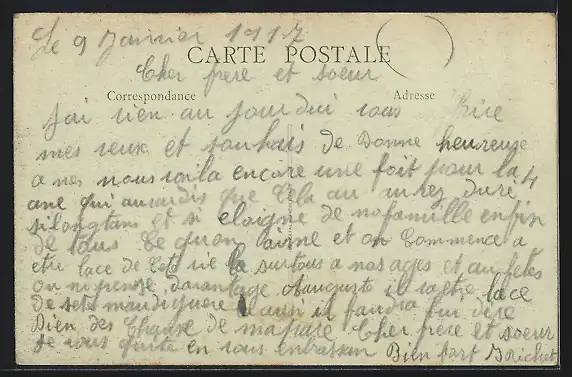 Le 9 Janvier 1917
CARTE POSTALE
Cher frere et soeur
Correspondance Adresse
Jai vien au jourdui vous
mes veux et souhais de Bonne heureuse
a nes nous voila encore une foit pour la 4
ane qui aurdis que Cela au duré
silongtans et si eloigne de no famille enfin
de tous Ce quon aime et on Commence a
etre lace de Cete vie la surtous a nos ages et au fetes
on ni pense davantage il va etre lace
de sete maudi guere il faudra fin dire
Bien des Chause de ma part Cher frere et soeur
Je vous quite en vous enbrassan Bien fort Brichet